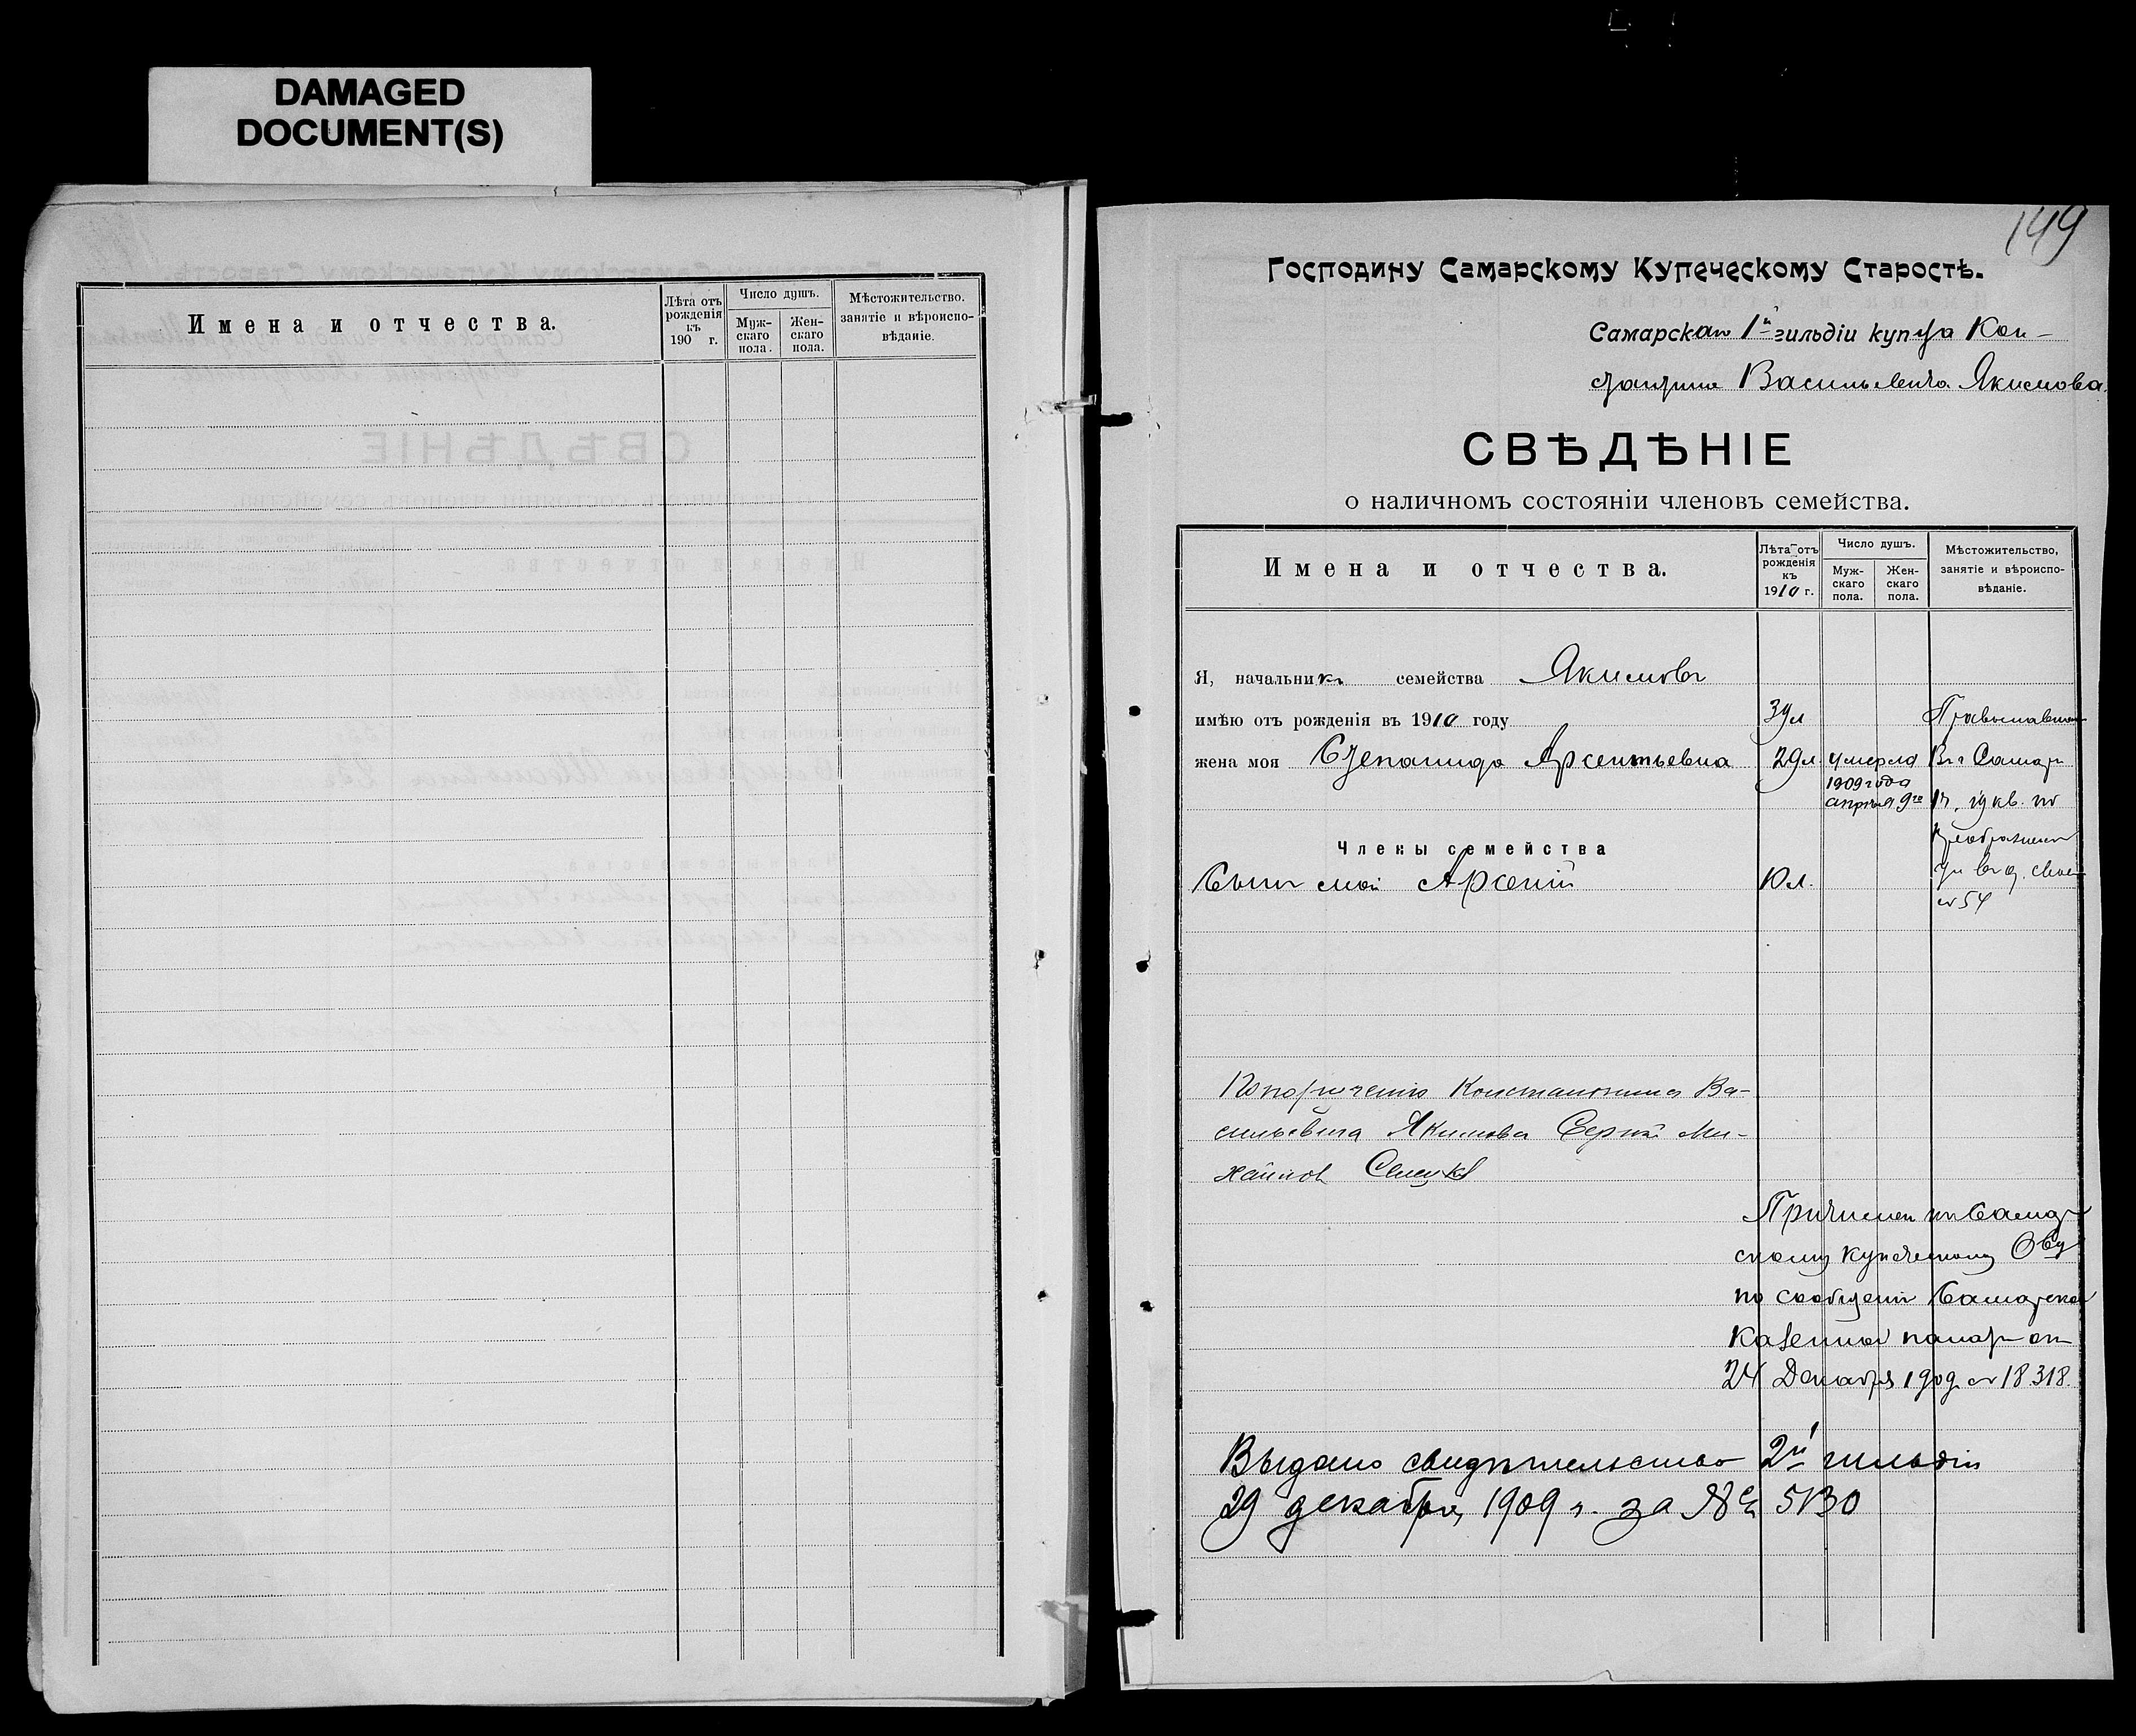 DAMAGED
DOCUMENT(S)
Имена и отчества.
Лѣта отъ
рожденія
къ
190 г.
Число душъ.
Муж-
скаго
пола.
Жен-
скаго
пола.
Мѣстожительство.
занятіе и вѣроиспо-
вѣданіе.
149
Господину Самарскому Купеческому Старостѣ.
Самарскаго 1й гильдіи купца Кон-
стантина Васильевича Якимова.
СВѢДѢНІЕ
о наличномъ состояніи членовъ семейства.
Имена и отчества.
Лѣта отъ
рожденія
къ
1910 г.
Число душъ.
Муж-
скаго
пола.
Жен-
скаго
пола.
Мѣстожительство,
занятіе и вѣроиспо-
вѣданіе.
Я, начальникъ семейства Якимовъ
имѣю отъ рожденія въ 1910 году 39 л Православное
жена моя Степанида Арсентьевна 29 л умерла Въ г Самар
1909 года
апрѣля 9го 1ч, 14 кв. по
Преображен
Члены семейства
Сынъ мой Арсеній 10 л.
№ 54
По порученію Константина Ва-
сильевича Якимова Сергѣй Ми-
хайловъ
Причислен къ Самар
скому купеческому Обву
по сообщенію Самарской
Казенной палаты от
24 Декабря 1909 № 18.318.
Выдано свидѣтельство 2й гильдіи
29 декабря 1909 г. за № 5130